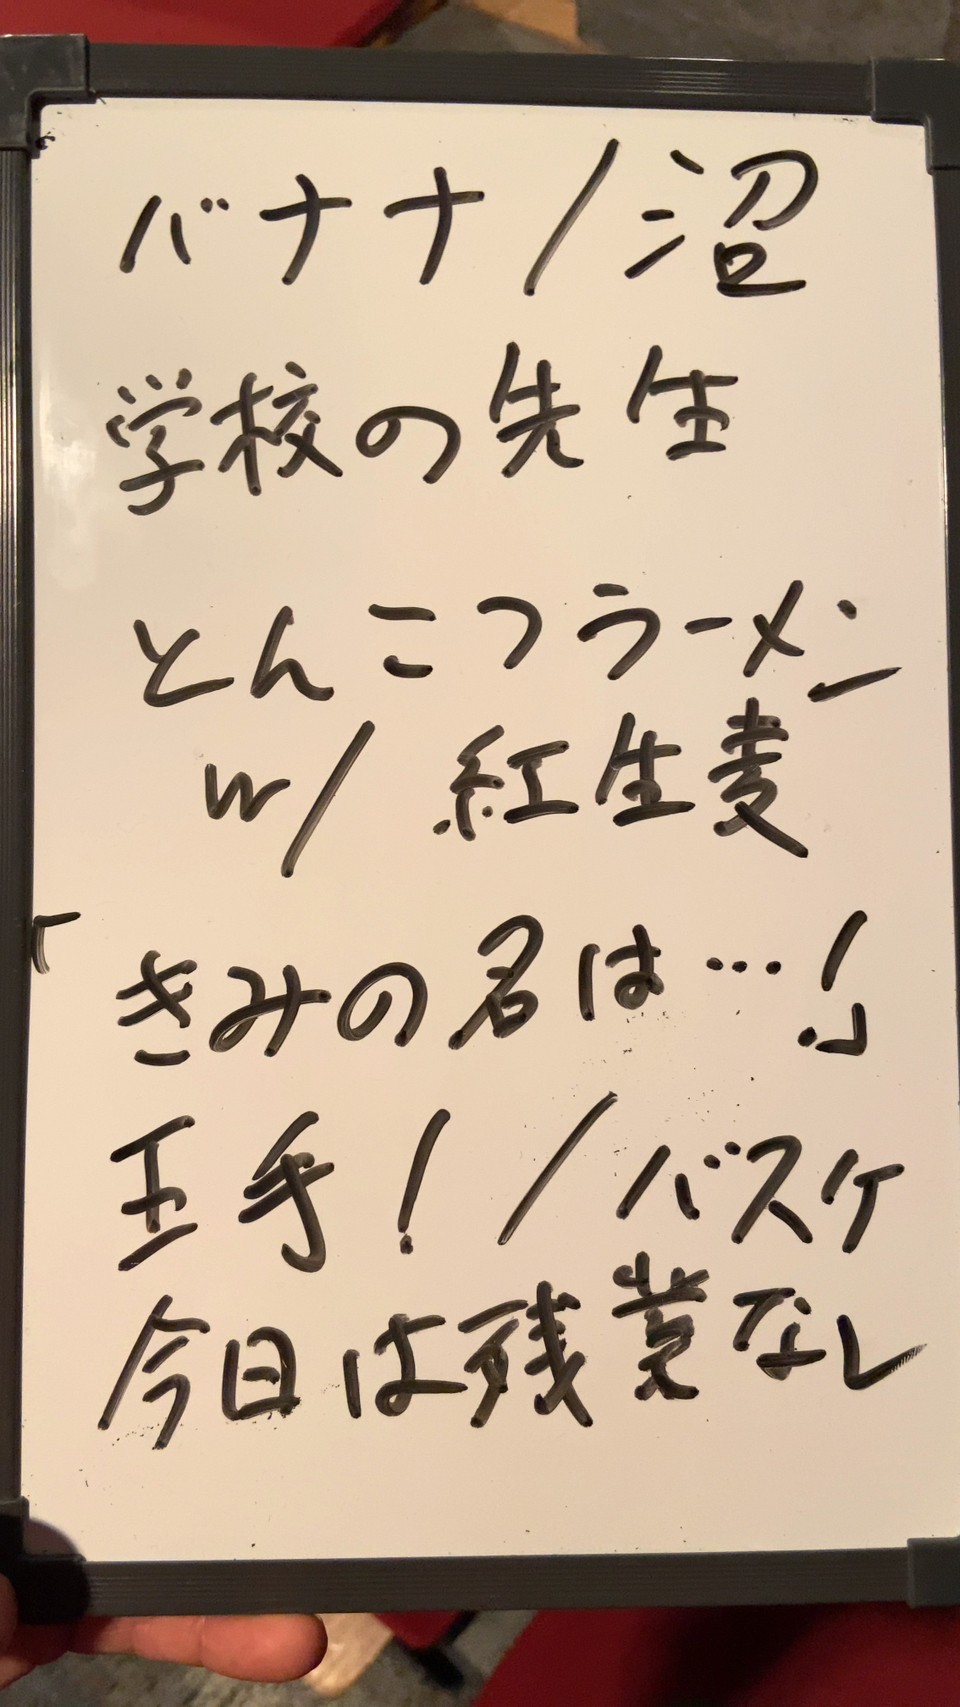 バナナ/沼
学校の先生
とんこつラーメン
w/ 紅生麦
「きみの名は…!」
王手!/バスケ
今日は残業なし